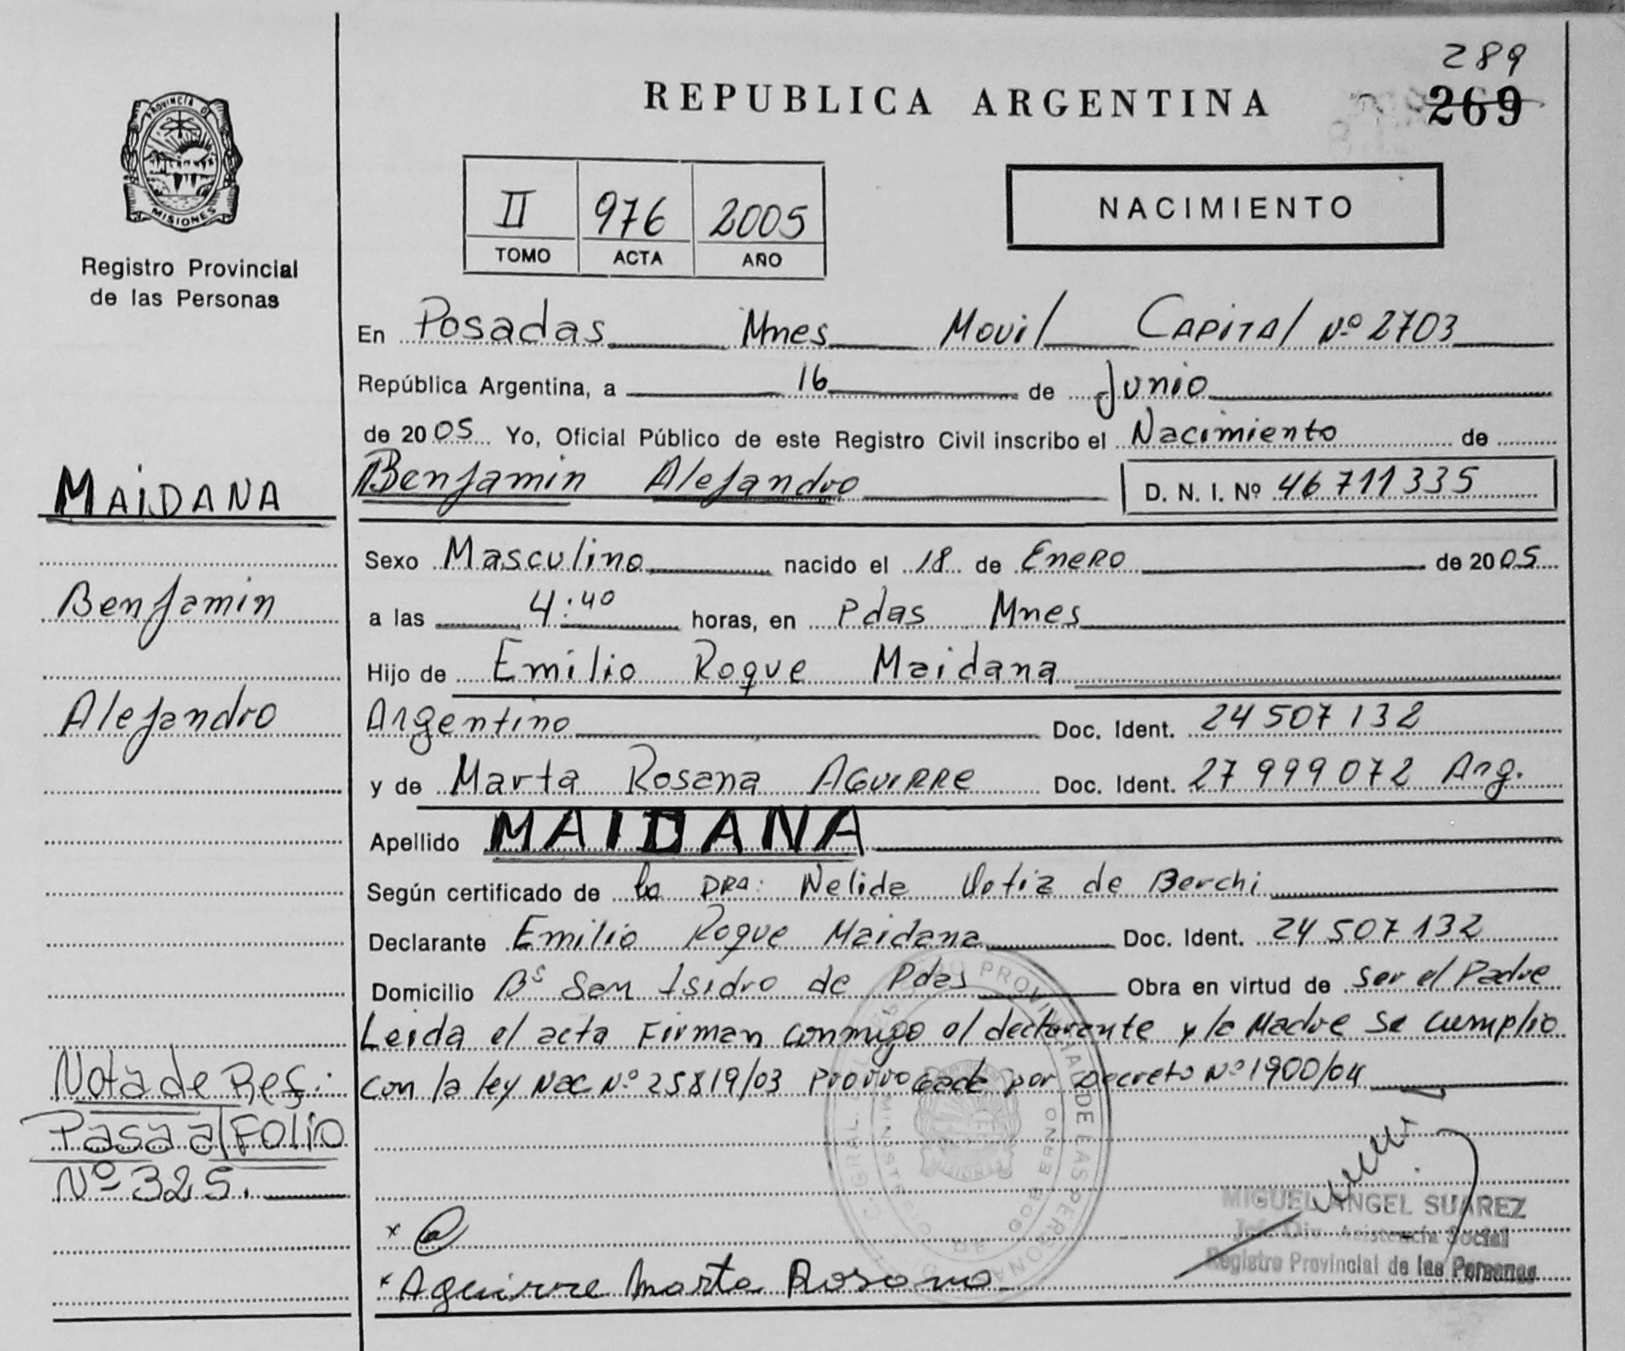 289
REPUBLICA ARGENTINA 269
PROVINCIA DE
MISIONES
Registro Provincial
de las Personas
II 976 2005
TOMO ACTA AÑO
NACIMIENTO
En Posadas Mnes Movil Capital Nº 2703
República Argentina, a 16 de Junio
de 2005 Yo, Oficial Público de este Registro Civil inscribo el Nacimiento de
Benjamin Alejandro D. N. I. Nº 46711335
MAIDANA
Sexo Masculino nacido el 18 de Enero de 2005
Benjamin
a las 4:40 horas, en Pdas Mnes
Hijo de Emilio Roque Maidana
Alejandro
Argentino Doc. Ident. 24507132
y de Marta Rosana AGUIRRE Doc. Ident. 27999072 Arg.
Apellido MAIDANA
Según certificado de la DRA: Nelida de Berchi
Declarante Emilio Roque Maidana Doc. Ident. 24507132
Domicilio Bº San Isidro de Pdas Obra en virtud de ser el Padre
Leida el acta Firman conmigo el declarante y la Madre se cumplio
con la ley Nac Nº 25819/03 por Decreto Nº 1900/04
Nota de Ref.:
Pasa al FOLIO
Nº 325.
MIGUEL ANGEL SUAREZ
Jefe Div. Asistencia Social
Registro Provincial de las Personas
x
x Aguirre Marta Rosana